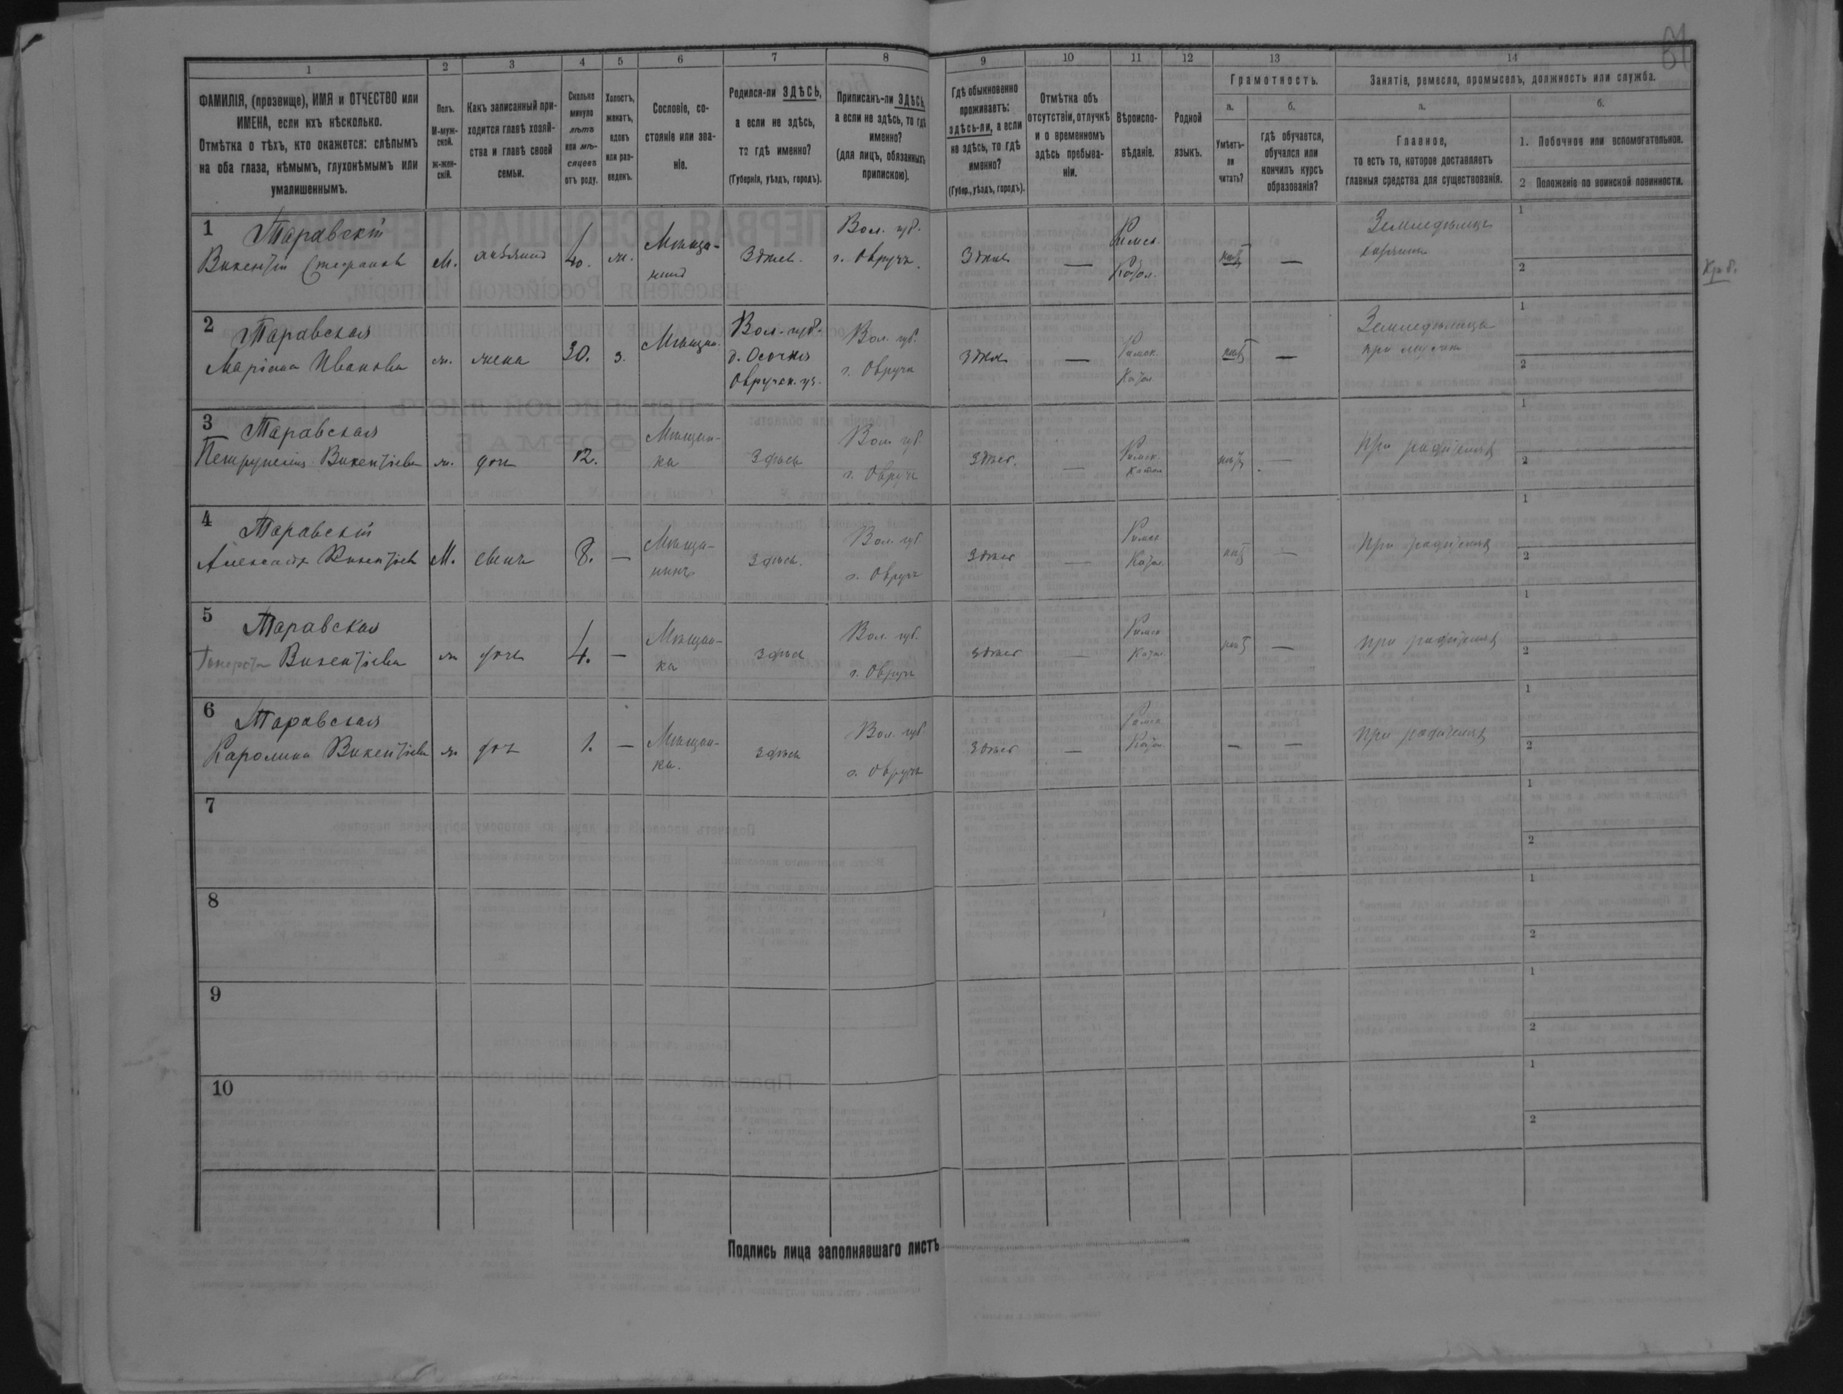 1 2 3 4 5 6 7 8 9 10 11 12 13 14
ФАМИЛІЯ, (прозвище), ИМЯ и ОТЧЕСТВО или
ИМЕНА, если ихъ нѣсколько.
Отмѣтка о тѣхъ, кто окажется: слѣпымъ
на оба глаза, нѣмымъ, глухонѣмымъ или
умалишеннымъ.
Полъ.
М-муж-
ской.
ж-жен-
скій.
Какъ записанный при-
ходится главѣ хозяй-
ства и главѣ своей
семьи.
Сколько
минуло
лѣтъ
или мѣ-
сяцевъ
отъ роду.
Холостъ,
женатъ,
вдовъ
или раз-
веденъ.
Сословіе, со-
стояніе или зва-
ніе.
Родился-ли ЗДѢСЬ,
а если не здѣсь,
то гдѣ именно?
(Губернія, уѣздъ, городъ).
Приписанъ-ли ЗДѢСЬ,
а если не здѣсь, то гдѣ
именно?
(для лицъ, обязанныхъ
припискою).
Гдѣ обыкновенно
проживаетъ:
здѣсь-ли, а если
не здѣсь, то гдѣ
именно?
(Губер., уѣздъ, городъ).
Отмѣтка объ
отсутствіи, отлучкѣ
и о временномъ
здѣсь пребыва-
ніи.
Вѣроиспо-
вѣданіе.
Родной
языкъ.
Грамотность.
а.
Умѣетъ-
ли
читать?
б.
Гдѣ обучается,
обучался или
кончилъ курсъ
образованія?
Занятіе, ремесло, промыселъ, должность или служба.
а.
Главное,
то есть то, которое доставляетъ
главныя средства для существованія.
б.
1. Побочное или вспомогательное.
2 Положеніе по воинской повинности.
1 Таравскій
Викентій Стефановъ М. 40. ж. Мѣща- Здѣсь. Вол. губ.
г. Овручъ. Здѣсь — Римск.
Катол. нѣт — Земледѣлецъ
1
2
2 Таравская
Маріана Иванова ж. жена 30. з. Мѣщан. Вол. губ.
Овручск. уѣ. Вол. губ.
г. Овручъ здѣсь — Римск.
Катол нѣт — Земледѣлица
при мужѣ
1
2
3 Таравская
Викентіева ж. дочь 12. Мѣщан-
ка Здѣсь Вол. губ
г. Овручъ здѣсь — Римск
Катол нѣт — При родителяхъ
1
2
4 Таравскій
Александръ Викентіевъ М. сынъ 8. — Мѣща-
нинъ здѣсь. Вол. губ
г. Овручъ здѣсь — Римск
Катол нѣт — При родителяхъ
1
2
5 Таравская
Викентіева ж дочь 4. — Мѣщан-
ка здѣсь Вол. губ.
г. Овручъ здѣсь — Римск
Катол нѣт — При родителяхъ
1
2
6 Таравская
Каролина Викентіева ж дочь 1. — Мѣщан-
ка. здѣсь Вол. губ
г. Овручъ здѣсь — Римск
Катол — — При родителяхъ
1
2
7
1
2
8
1
2
9
1
2
10
1
2
Подпись лица заполнявшаго листъ